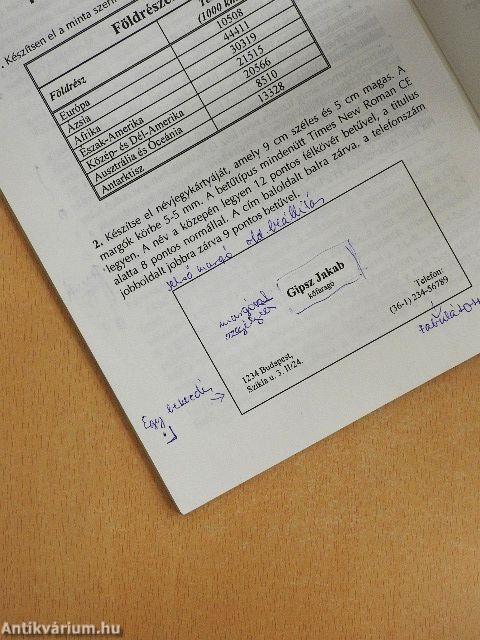 . Készítsen el a minta szerin
Földrészek
(1000 km
Földrész
Európa 10508
Ázsia 44411
Afrika 30319
Észak-Amerika 21515
Közép- és Dél-Amerika 20566
Ausztrália és Óceánia 8510
Antarktisz 13328
2. Készítse el névjegykártyáját, amely 9 cm széles és 5 cm magas. A
margók körbe 5-5 mm. A betűtípus mindenütt Times New Roman CE
legyen. A név a közepén legyen 12 pontos félkövér betűvel, a titulus
alatta 8 pontos normállal. A cím baloldalt balra zárva, a telefonszám
jobboldalt jobbra zárva 9 pontos betűvel.
felső margó old. beállítás
margóval
Gipsz Jakab
kőfaragó
Telefon:
(36-1) 234-56789
1234 Budapest,
Szikla u. 3. II/24.
Egy bekezdés
Antikvárium.hu